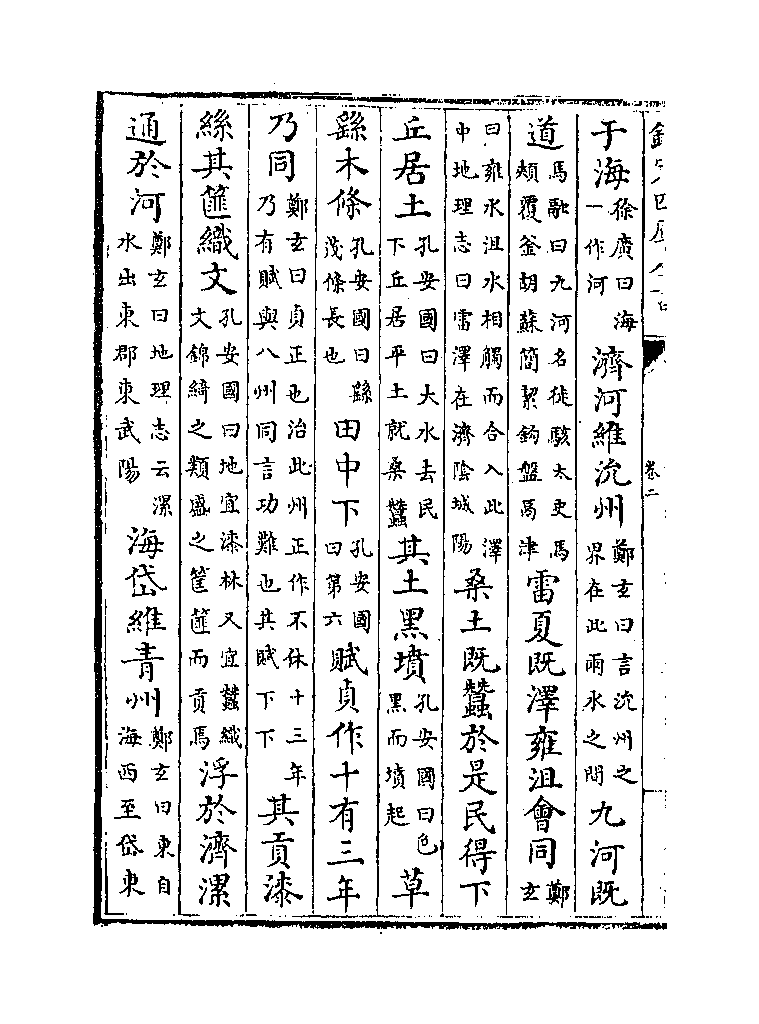 卷二
于海徐廣曰海一作河濟河維沇州鄭玄曰言沇州之界在此兩水之間九河既
道馬融曰九河名徒駭太史馬頰覆釜胡蘇簡絜鉤盤鬲津雷夏既澤雍沮會同鄭玄
曰雍水沮水相觸而合入此澤中地理志曰雷澤在濟陰城陽桑土既蠶於是民得下
丘居土孔安國曰大水去民下丘居平土就桑蠶其土黑墳孔安國曰色黑而墳起草
繇木條孔安國曰繇茂條長也田中下孔安國曰第六賦貞作十有三年
乃同鄭玄曰貞正也治此州正作不休十三年乃有賦與八州同言功難也其賦下下其貢漆
絲其篚織文孔安國曰地宜漆林又宜蠶織文錦綺之類盛之筐篚而貢焉浮於濟漯
通於河鄭玄曰地理志云漯水出東郡東武陽海岱維青州鄭玄曰東自海西至岱東